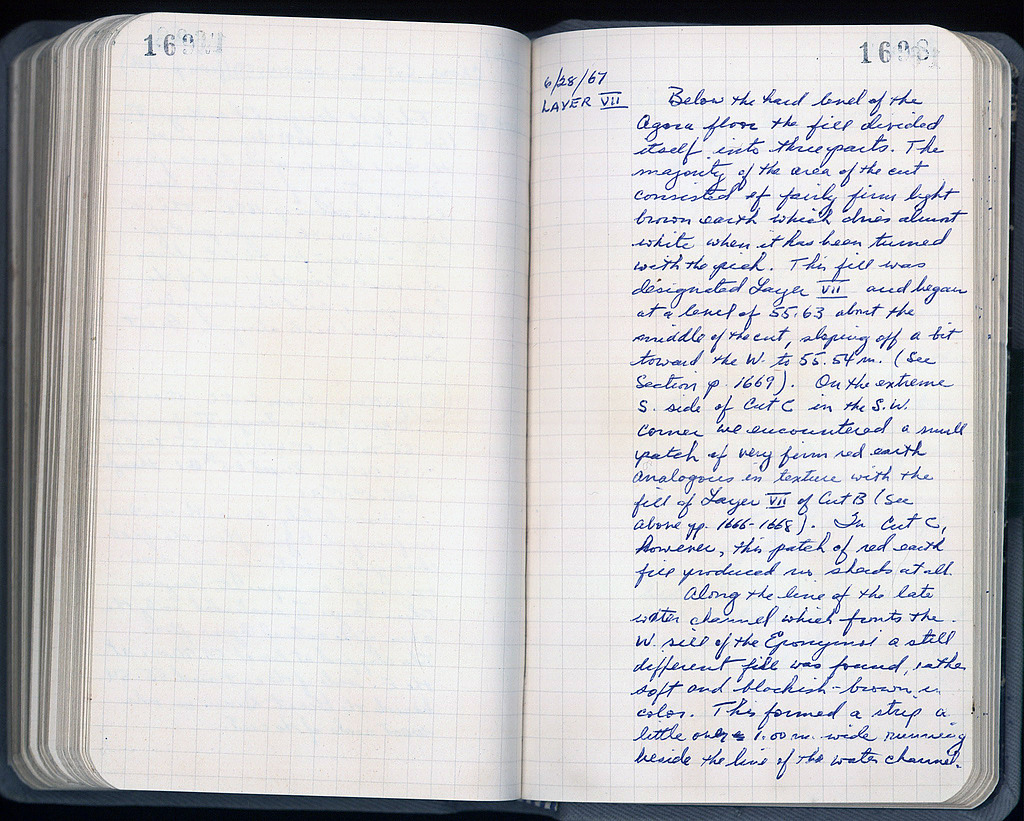 1697
1698
6/28/67
LAYER VII
Below the hard level of the
Agora floor the fill divided
itself into three parts. The
majority of the area of the cut
consisted of fairly firm light
brown earth which dries almost
white when it has been turned
with the pick. This fill was
designated Layer VII and began
at a level of 55.63 about the
middle of the cut, sloping off a bit
toward the W. to 55.54 m. (See
Section p. 1669). On the extreme
S. side of Cut C in the S.W.
corner we encountered a small
patch of very firm red earth
analogous in texture with the
fill of Layer VII of Cut B (See
above pp. 1666-1668). In Cut C,
however, this patch of red earth
fill produced no sherds at all.
Along the line of the late
water channel which fronts the
W. sill of the Eponymoi a still
different fill was found, rather
soft and blackish-brown in
color. This formed a strip a
little over 1.00 m. wide running
beside the line of the water channel.